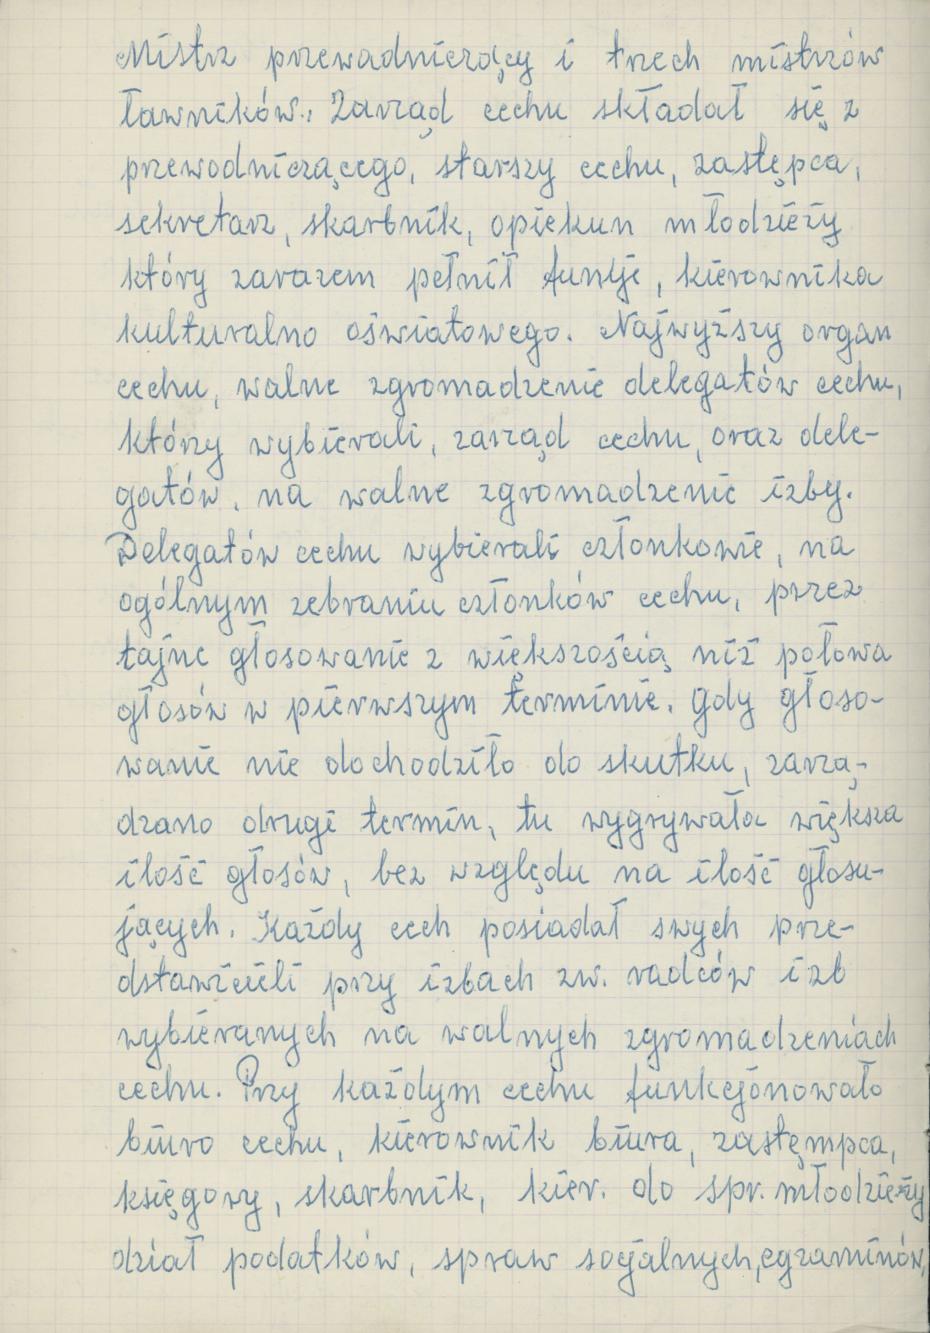 Mistrz przewadniczący i trzech mistrzów
ławników. Zarząd cechu składał się z
przewodniczącego, starszy cechu, zastępca,
sekretarz, skarbnik, opiekun młodzieży
który zarazem pełnił funkje, kierownika
kulturalno oświatowego. Najwyższy organ
cechu, walne zgromadzenie delegatów cechu,
którzy wybierali, zarząd cechu, oraz dele-
gatów, na walne zgromadzenie izby.
Delegatów cechu wybierali członkowie, na
ogólnym zebraniu członków cechu, przez
tajne głosowanie z większością niż połowa
głosów w pierwszym terminie. Gdy głoso-
wanie nie dochodziło do skutku, zarzą-
dzano drugi termin, tu wygrywała większa
ilość głosów, bez względu na ilość głosu-
jących. Każdy cech posiadał swych prze-
dstawicieli przy izbach zw. radców izb
wybieranych na walnych zgromadzeniach
cechu. Przy każdym cechu funkcjonowało
biuro cechu, kierownik biura, zastęmpca,
księgowy, skarbnik, kier. do spr. młodzieży
dział podatków, spraw socjalnych, egzaminów,